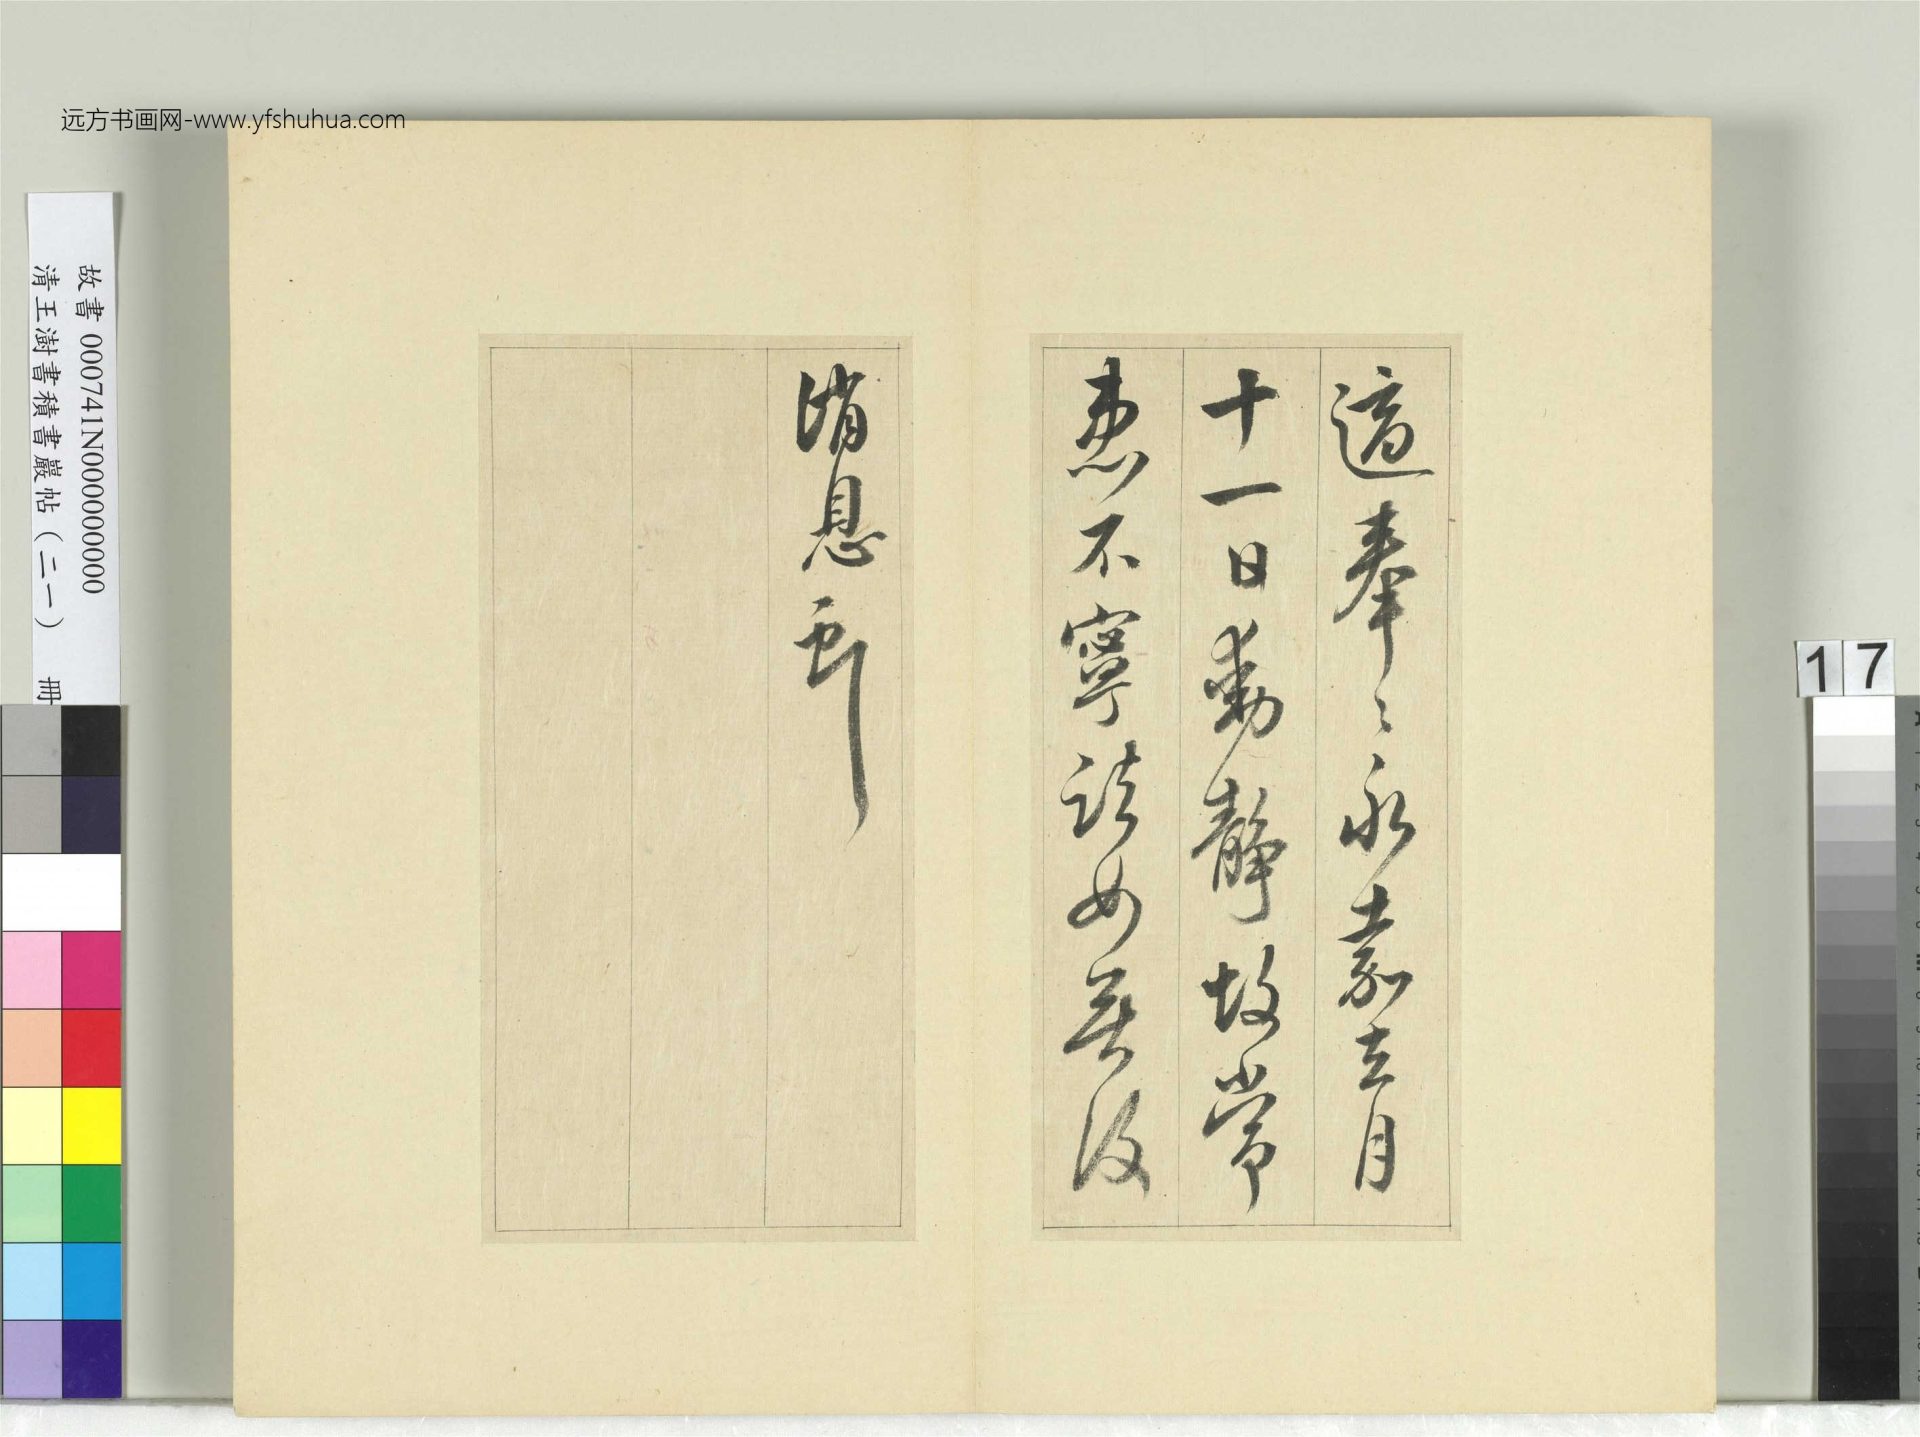 远方书画网-www.yfshuhua.com
故書 000741N000000000
清王澍書積書巖帖（二一） 冊
適奉〻永嘉去月
十一日動靜故常
患不寧諸女無復
消息耶
17